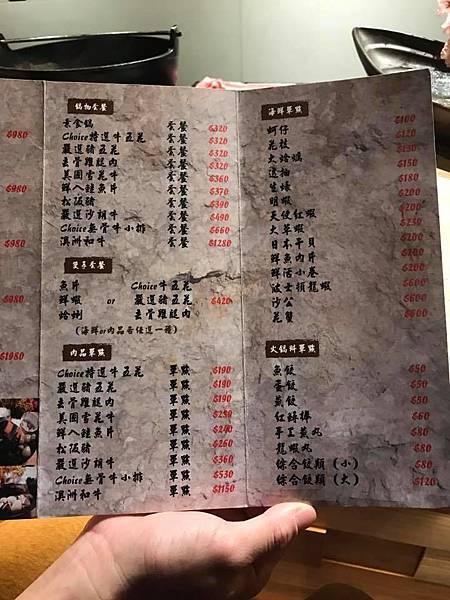 $980
$980
$980
$1980
鍋物套餐
素食鍋 套餐 $320
Choice特選牛五花 套餐 $320
嚴選豬五花 套餐 $320
去骨雞腿肉 套餐 $320
美國雪花牛 套餐 $360
鮮入鮭魚片 套餐 $370
松阪豬 套餐 $390
嚴選沙朗牛 套餐 $490
Choice無骨牛小排 套餐 $660
澳洲和牛 套餐 $1280
雙享套餐
魚片 Choice牛五花
鮮蝦 or 嚴選豬五花 $420
蛤蜊 去骨雞腿肉
(海鮮or肉品各任選一種)
肉品單點
Choice特選牛五花 單點 $190
嚴選豬五花 單點 $190
去骨雞腿肉 單點 $190
美國雪花牛 單點 $230
鮮入鮭魚片 單點 $240
松阪豬 單點 $260
嚴選沙朗牛 單點 $360
Choice無骨牛小排 單點 $530
澳洲和牛 單點 $1150
海鮮單點
蚵仔 $100
花枝
大蛤蠣
透抽 $150
生蠔 $180
明蝦 $200
天使紅蝦 $200
大草蝦 $230
日本干貝 $200
鮮魚肉片 $200
鮮活小卷 $200
波士頓龍蝦 $600
沙公 $600
花蟹 $600
火鍋料單點
魚餃 $50
蛋餃 $50
燕餃 $50
紅蟳棒 $60
手工蝦丸 $80
龍蝦丸 $80
綜合餃類(小) $80
綜合餃類(大) $120